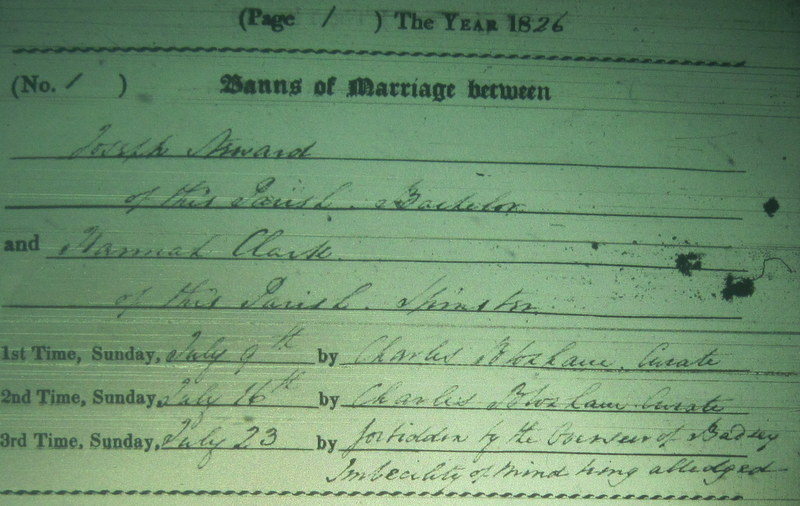 (Page 1 ) The YEAR 1826
(No. 1 ) Banns of Marriage between
Joseph
of this Parish. Bachelor
and Hannah Clark
of this Parish. Spinster
1st Time, Sunday, July 9th by Charles Bloxham, Curate
2nd Time, Sunday, July 16th by Charles Bloxham Curate
3rd Time, Sunday, July 23 by forbidden by the Overseer of Badsey
Imbecility of Mind being alledged